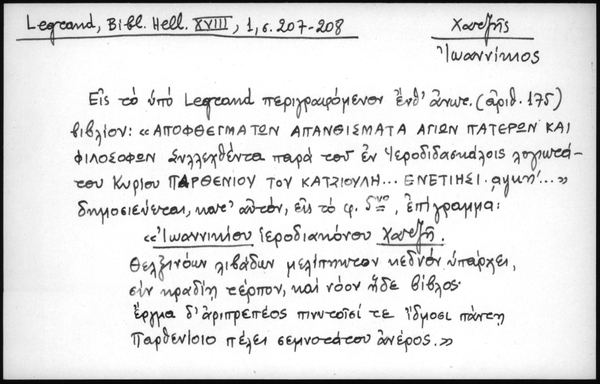 Legrand, Βibl. Hell. XVIII, 1, σ. 207-208
Χατζῆς
Ἰωαννίκιος
Εἰς τὸ ὑπὸ Legrand περιγραφόμενον ἔνθ' ἀνωτ. (ἀριθ. 175)
βιβλίον: «ΑΠΟΦΘΕΓΜΑΤΩΝ ΑΠΑΝΘΙΣΜΑΤΑ ΑΓΙΩΝ ΠΑΤΕΡΩΝ ΚΑΙ
ΦΙΛΟΣΟΦΩΝ Συλλεχθέντα παρὰ τοῦ ἐν Ἱεροδιδασκάλοις λογιωτά-
του Κυρίου ΠΑΡΘΕΝΙΟΥ ΤΟΥ ΚΑΤΖΙΟΥΛΗ... ΕΝΕΤΙΗΣΙ. αψκη'...»
δημοσιεύεται, κατ' αὐτόν, εἰς τὸ φ. 5νο, ἐπίγραμμα:
«Ἰωαννικίου ἱεροδιακόνου Χατζῆ.
Θελξινόων λιβάδων μελίπνητον κεδνὸν ὑπάρχει,
εἰν κραδίῃ τέρπον, καὶ νόον ἥδε βίβλος·
ἔργμα δ' ἀριπρεπέος πινυτοῖσί τε ἴδμοσι πάντῃ
Παρθενίοιο πέλει σεμνοτάτου ἀνέρος.»